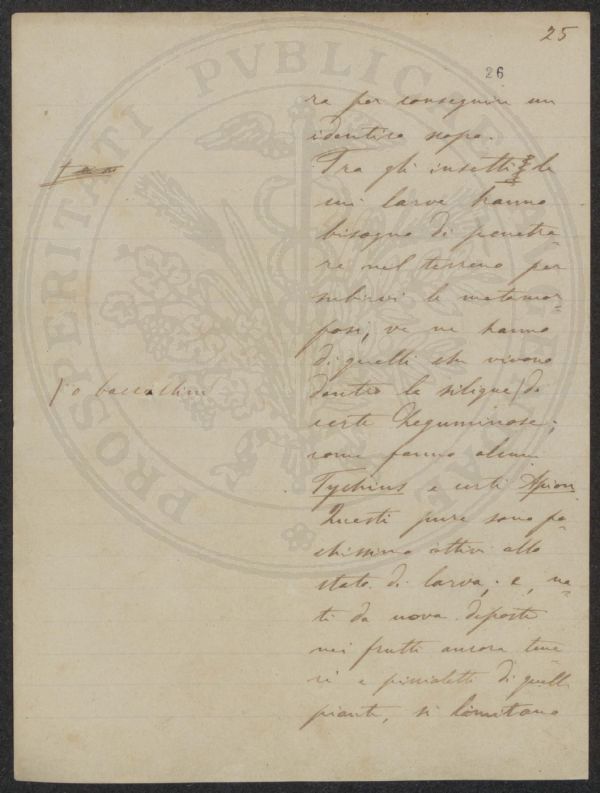 25
26
ra per conseguire un
identico scopo.
Tra gli insetti le
cui larve hanno
bisogno di penetra-
re nel terreno per
subirvi le metamor-
fosi, ve ne hanno
di quelli che vivono
dentro le silique/ di
/ o baccellini
certe Leguminose;
come fanno alcuni
Tychius e certi Apion.
Questi pure sono po-
chissimo attivi allo
stato di larva; e, na-
ti da uova deposte
nei frutti ancora tene
ri e piccoletti di quelle
piante, si limitano
PROSPERITATI PVBLICAE